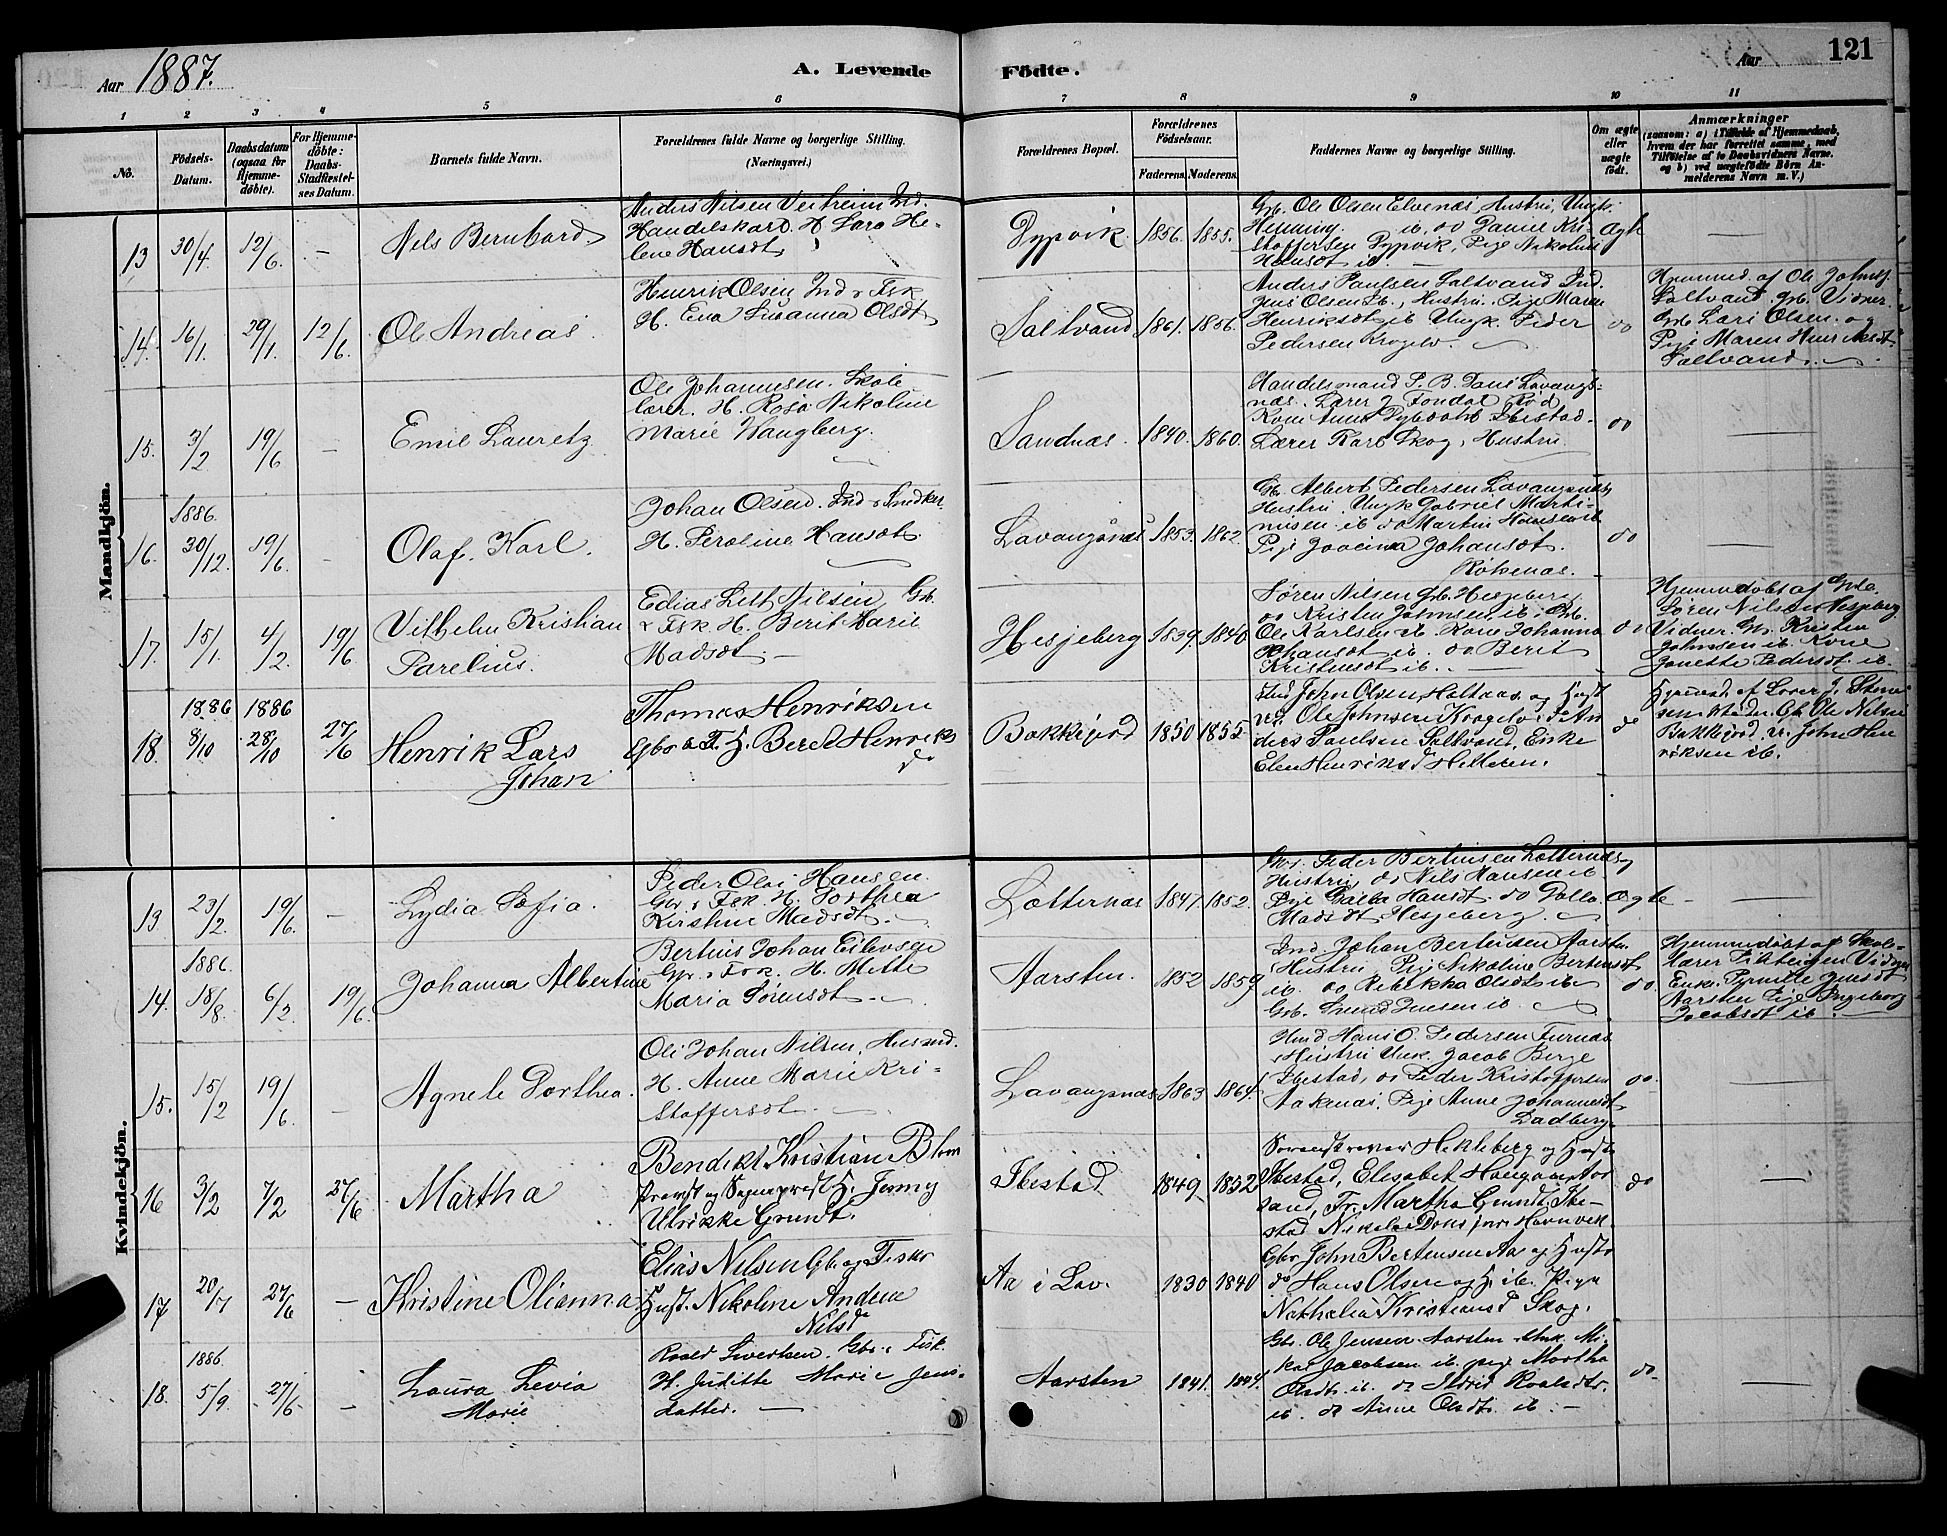 Aar 1887.
A. Levende Födte.
Aar
121
1 2 3 4 5 6 7 8 9 10 11
No.
Födsels-Datum.
Daabsdatum (ogsaa for Hjemme-döbte).
For Hjemme-döbte: Daabs-Stadfestel-ses Datum.
Barnets fulde Navn.
Forældrenes fulde Navne og borgerlige Stilling.
(Næringsvei.)
Forældrenes Bopæl.
Forældrenes Födselsaar.
Faderens. Moderens.
Faddernes Navne og borgerlige Stilling.
Om ægte eller uægte födt.
Anmærkninger
(saasom: a) i Tilfælde af Hjemmedaab, hvem der har forrettet samme, med Tilföielse af to Daabsvidners Navne, og b) ved uægtefödte Börn An-melderens Navn m. V.)
Mandkjön.
13 30/4 12/6. — Nels Bernhard
Anders Nilsen Vertheim Ind.
Handelskarl. H. Sara He-
lene Hansdt
Dypvik 1856. 1855.
Gb. Ole Olsen Elvenæs, Hustru, Ungk.
Henning ib, do Danne Kri-
stoffersen Dypvik, Pige Nikoline
Hansdt ib —
Ægte
14. 16/1. 29/1. 12/6. Ole Andreas.
Henrik Olsen Ind & Fsk
H. Ena Susanna Olsdt
Saltvand 1861. 1856.
Anders Paulsen Saltvand Ind.
Jens Olsen ib, Hustru. Pige Maren
Henriksdt ib Ungk. Peder
Pedersen Krogelv.
do
Hjemmed. af Ole Johns
Saltvand. Gb. Vidner.
Gb. Lars Olsen og
Pige Maren Henriksdt
Saltvand.
15. 3/2 19/6 — Emil Lauretz
Ole Johannesen. Skole
lærer. H. Rosa Nikoline
Marie Wangberg.
Sandnæs. 1840. 1860.
Handelsmand P. B. Dans Lavangs-
næs. Lærer J Fondal Rød
Kone Anne Dybdahl Ibestad.
Lærer Karl Skog, Hustru
do
—
1886.
16. 30/12. 19/6. — Olaf. Karl.
Johan Olsen. Ind & Snedker.
H. Peroline Hansdt
Lavangsnæs 1853. 1862.
Gb. Albert Pedersen Lavangsnæs,
Hustru. Ungk Gabriel Marti-
nusen ib do Martin Hansen ib
Pige Joacima Johansdt.
Rökenæs.
do
—
17. 15/1. 4/2. 19/6 Vilhelm Kristian
Parelius.
Edias Lett Nilsen, Gb.
& Fsk. H. Berit Marie
Madsdt. —
Hesjeberg 1839. 1840
Sören Nilsen Gb. Hesjeberg
do Kristen Johnsen ib. Gb.
Ole Karlsen ib. Kone Johanna
Johansdt ib. do Berit
Kristensdt ib. —
do
Hjemmedøbt af Gb.
Søren Nilsen Hesjeberg.
Vidner. Gb. Kristen
Johnsen ib. Kone
Janette Pedersdt ib.
1886 1886
18. 8/10 28/10 27/6 Henrik Lars
Johan
Thomas Henriksen
Gbr & F. H. Beret Henriks
d
Bakkejord 1850 1855
Ind John Olsen Haltaas og Hust
ru, Ole Johnsen Krogelv, do An
ders Paulsen Saltvand, Enke
Elen Henriksd Helteren.
do
Hjemmd. af Lærer J. Sten
sen Vidn. Gb Ole Nilsen
Bakkejord, u. John Hen
riksen ib.
Kvindekjön.
13. 23/2. 19/6. — Lydia Sofia.
Peder Olai Hansen
Gbr & Fsk. H. Dorthea
Kirstine Madsdt.
Lætternæs 1847. 1852.
Gbr. Peder Bertinsen Lætternæs,
Hustru, do Nils Hansen ib
Pige Hansdt. do
Madsdt Hesjeberg.
Ægte
—
1886.
14. 18/8. 6/2. 19/6. Johanna Albertine
Bertius Johan Eilevsen
Gbr. & Fsk. H. Mette
Maria Sörensdt. —
Aarsten. 1852 1859
Ind. Johan Berteusen Aarsten
Hustru Pige Nikoline Bertensdt
ib. do Rebekka Olsdt ib
Gb. Jensen ib.
do.
Hjemmedøbt af Skole-
lærer Vidner
Enke. Pernille Jensdt
Aarsten Pige Ingeborg
Jacobsdt ib. —
15. 15/2 19/6. — Agnete Dorthea.
Ole Johan Nilsen, Husmd.
H. Anne Marie Kri-
stoffersdt. —
Lavangsnæs 1863 1864.
Husmd Hans O. Pedersen Furnæs
Hustru Unk. Jacob Berge
Ibestad, do Peder Kristoffersen
Aakenæs. Pige Anne Johannesdt
Dadberg.
do.
—
16 3/2 7/2 27/6 Martha
Bendikt Kristian Blom
Provst og Sogneprest H. Jenny
Ulrikke Grundt.
Ibestad 1849 1852
Sorenskriver Hekleberg og Hustr
Ibestad, Elisabet Haugaas
sand, Fr. Martha Grundt, Ibe-
stad Nikolai Dons jnr. Havnvik
do
—
17 20/7 27/6 — Kristine Olianna
Elias Nilsen Gbr. og Fisker
Hust. Nikoline Andrea
Nilsd
Aa i Lav. 1830 1840
Gbr John Bertensen Aa og Hustr
do Hans Olsen og H. ib. Pigen
Nathalia Kristiansd Skog.
1886.
18. 5/9. 27/6. — Laura Levia
Marie
Roald Sivertsen. Gbr. & Fisk.
H. Juditte Marie Jens-
datter. —
Aarsten 1841. 1844.
Gbr. Ole Jensen Aarsten Unk. Mi-
kal Jacobsen ib. pige Martha
Olsdtr. ib. do Roaldsdtr.
ib. do Anne Olsdtr. ib. —
do.
—